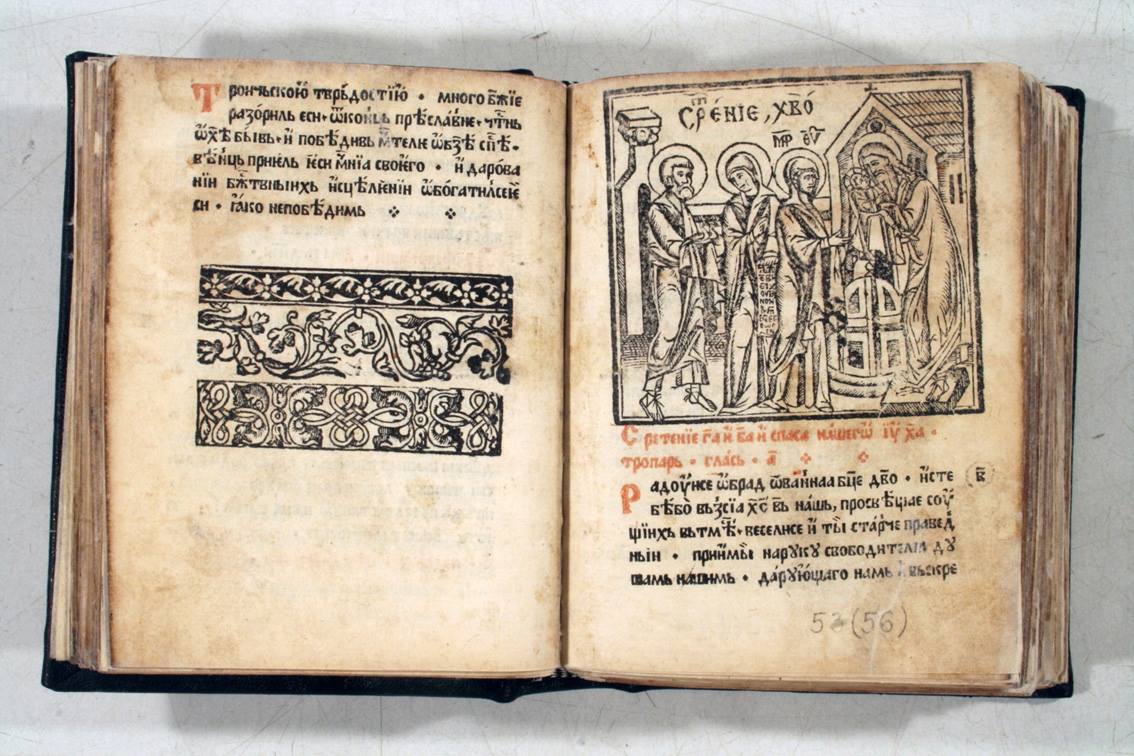 Троичьскою твръдостїю · много бж҃їе
разорилъ еси · ѿконць прѣславне · чⷭ҇тнь
ѡ҆х҃ѣ бывь · и҆ побѣдивь мт҃ели ѡ҆бз҃ѣ сп҃ѣ ·
вѣнць прие҆ль е҆си мн҃їа свое҆го · и҆ дарова
нїи бж҃твныихь и҆сцѣлие҆нїи ѡ҆богатилсее҆
си · ꙗ҆ко непобѣдимь
СРѢ́НІЕ, ХВ҃О́
МР҃ ѲУ҃
Сретенїе га҃ и҆ ба҃ и҆ спаса нашегѡ і҆у҃ ха҃ ·
тропарь · глась · а҃
Радоуисе ѡ҆брад ѡ҆ваннаа бц҃е дв҃о · и҆сте
бѣбо̀ възсїа хс҃ бъ҃ нашь, просвѣщае соу
щїихь вьтмѣ · веселисе и҆ ты старче правед
ныи · приимы нарукꙋ свободителıа дꙋ
шамь нашимь · дарꙋющаго намь вьскре
в҃
53(56)